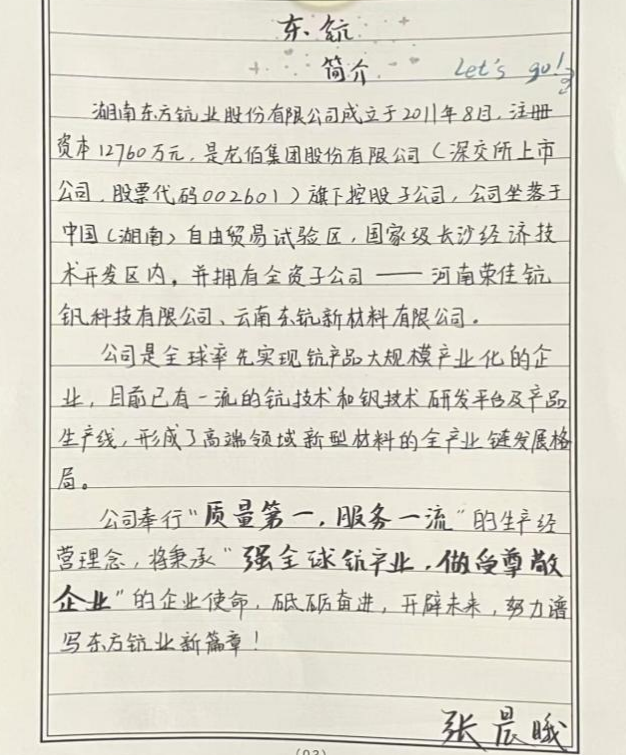 东钪
简介
Let's go!
湖南东方钪业股份有限公司成立于2011年8月,注册
资本12760万元,是龙佰集团股份有限公司(深交所上市
公司,股票代码002601)旗下控股子公司,公司坐落于
中国(湖南)自由贸易试验区,国家级长沙经济技
术开发区内,并拥有全资子公司——河南荣佳钪
钒科技有限公司、云南东钪新材料有限公司。
公司是全球率先实现钪产品大规模产业化的企
业,目前已有一流的钪技术和钒技术研发平台及产品
生产线,形成了高端领域新型材料的全产业链发展格
局。
公司奉行“质量第一,服务一流”的生产经
营理念,将秉承“强全球钪产业,做受尊敬
企业”的企业使命,砥砺奋进,开辟未来,努力谱
写东方钪业新篇章!
张晨
(03)